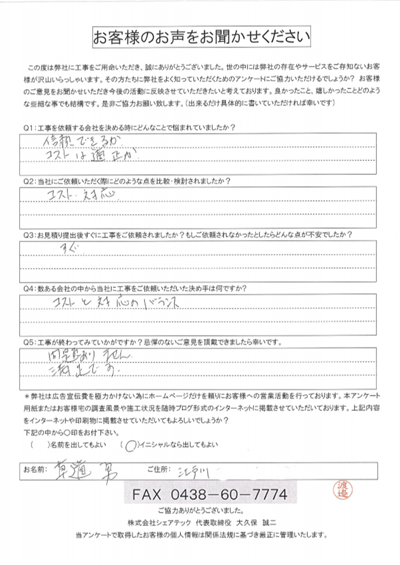 お客様のお声をお聞かせください
この度は弊社に工事をご用命いただき、誠にありがとうございました。世の中には弊社の存在やサービスをご存知ないお客様
が沢山いらっしゃいます。その方たちに弊社をよく知っていただくためのアンケートにご協力いただけるでしょうか? お客様
のご意見をお聞かせいただき今後の活動に反映させていただきたいと考えております。良かったこと、嬉しかったことどのよう
な些細な事でも結構です、是非ご協力お願い致します。(出来るだけ具体的に書いていただければ幸いです)
Q1:工事を依頼する会社を決める時にどんなことで悩まれていましたか?
信頼できるか
コストは適正か
Q2:当社にご依頼いただく際にどのような点を比較・検討されましたか?
コスト・対応
Q3:お見積り提出後すぐに工事をご依頼されましたか?もしご依頼されなかったとしたらどんな点が不安でしたか?
すぐ
Q4:数ある会社の中から当社に工事をご依頼いただいた決め手は何ですか?
コストと対応のバランス
Q5:工事が終わってみていかがですか?忌憚のないご意見を頂戴できましたら幸いです。
問題ありません
満足です
*弊社は広告宣伝費を極力かけない為にホームページだけを頼りにお客様への営業活動を行っております。本アンケート
用紙またはお客様宅の調査風景や施工状況を随時ブログ形式のインターネットに掲載させていただいております。上記内容
をインターネットや印刷物に掲載させていただいてもよろしいでしょうか?
下記の中から〇印をお付下さい。
( )名前を出してもよい (〇)イニシャルなら出してもよい
お名前: 男 ご住所: 江戸川
FAX 0438-60-7774
渡邉
ご協力ありがとうございました。
株式会社シェアテック 代表取締役 大久保 誠二
当アンケートで取得したお客様の個人情報は関係法規に基づき厳正に管理いたします。